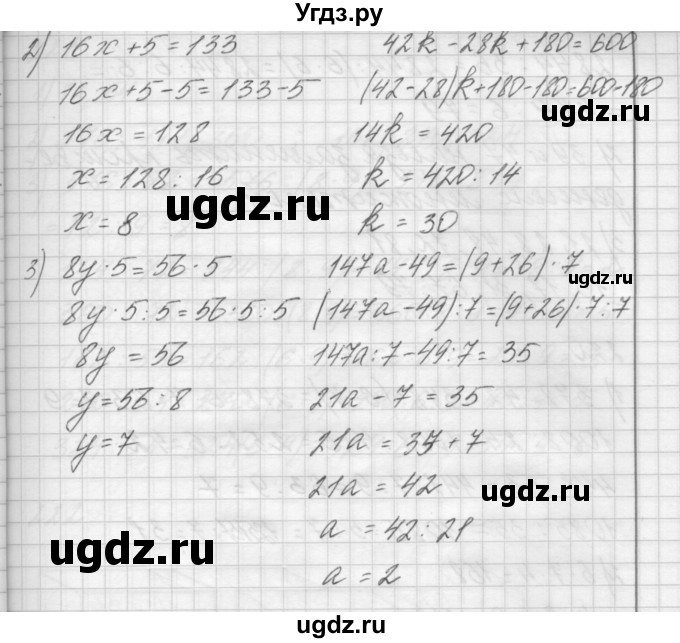 Угдз.ру
2) 16x + 5 = 133
16x + 5 - 5 = 133 - 5
16x = 128
x = 128 : 16
x = 8
42k - 28k + 180 = 600
(42 - 28)k + 180 - 180 = 600 - 180
14k = 420
k = 420 : 14
k = 30
3) 8y · 5 = 56 · 5
8y · 5 : 5 = 56 · 5 : 5
8y = 56
y = 56 : 8
y = 7
147a - 49 = (9 + 26) · 7
(147a - 49) : 7 = (9 + 26) · 7 : 7
147a : 7 - 49 : 7 = 35
21a - 7 = 35
21a = 35 + 7
21a = 42
a = 42 : 21
a = 2
ugdz.ru
ugdz.ru
ugdz.ru
ugdz.ru
ugdz.ru
ugdz.ru